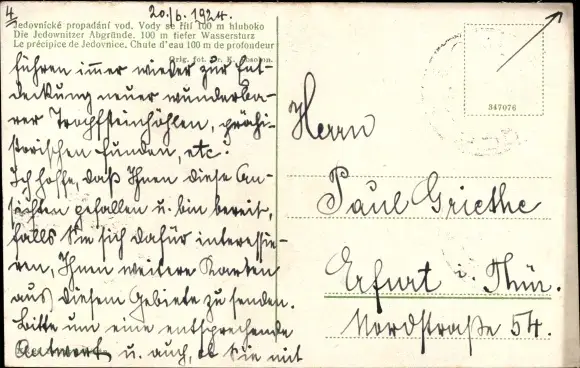 4
20./6. 1924.
Jedovnické propadání vod. Vody se řítí 100 m hluboko
Die Jedownitzer Abgründe. 100 m tiefer Wassersturz
Le précipice de Jedovnice. Chute d'eau 100 m de profondeur
Orig. fot. Dr. K. Absolon.
führen immer wieder zur Ent-
deckung neuer wunderba-
rer Tropfsteinhöhlen, prähi-
storischen Funden, etc.
Ich hoffe, daß Ihnen diese An-
sichten gefallen u. bin bereit,
falls Sie sich dafür interessie-
ren, Ihnen weitere Karten
aus diesem Gebiete zu senden.
Bitte um eine entsprechende
Antwort, u. auch, ob Sie mit
347076
Herrn
Paul Griethe
Erfurt i. Thür.
Nordstraße 54.